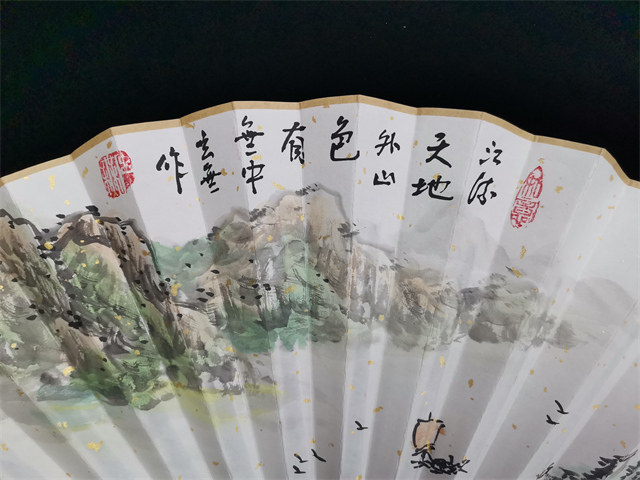 江流
天地
外山
色
有
無中
作